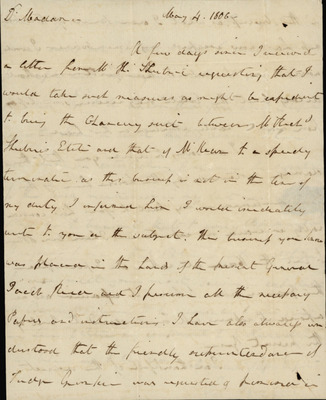 Dr. Madam May 4. 1806
A few days since I received
a letter from Mr. Ths. Shubrick requesting that I
would take such measures as might be expedient
to bring the Chancery suit between Mr. Richd.
Shubricks Estate and that of Mr. to a speedy
termination as this business is not in the line of
my duty I informed him I would immediately
write to you on the subject. This business you know
was placed in the hands of the present General
Jacob Read and I presume all the necessary
Papers and instructions. I have also always un
derstood that the friendly superintendance of
Judge was requested & promised in